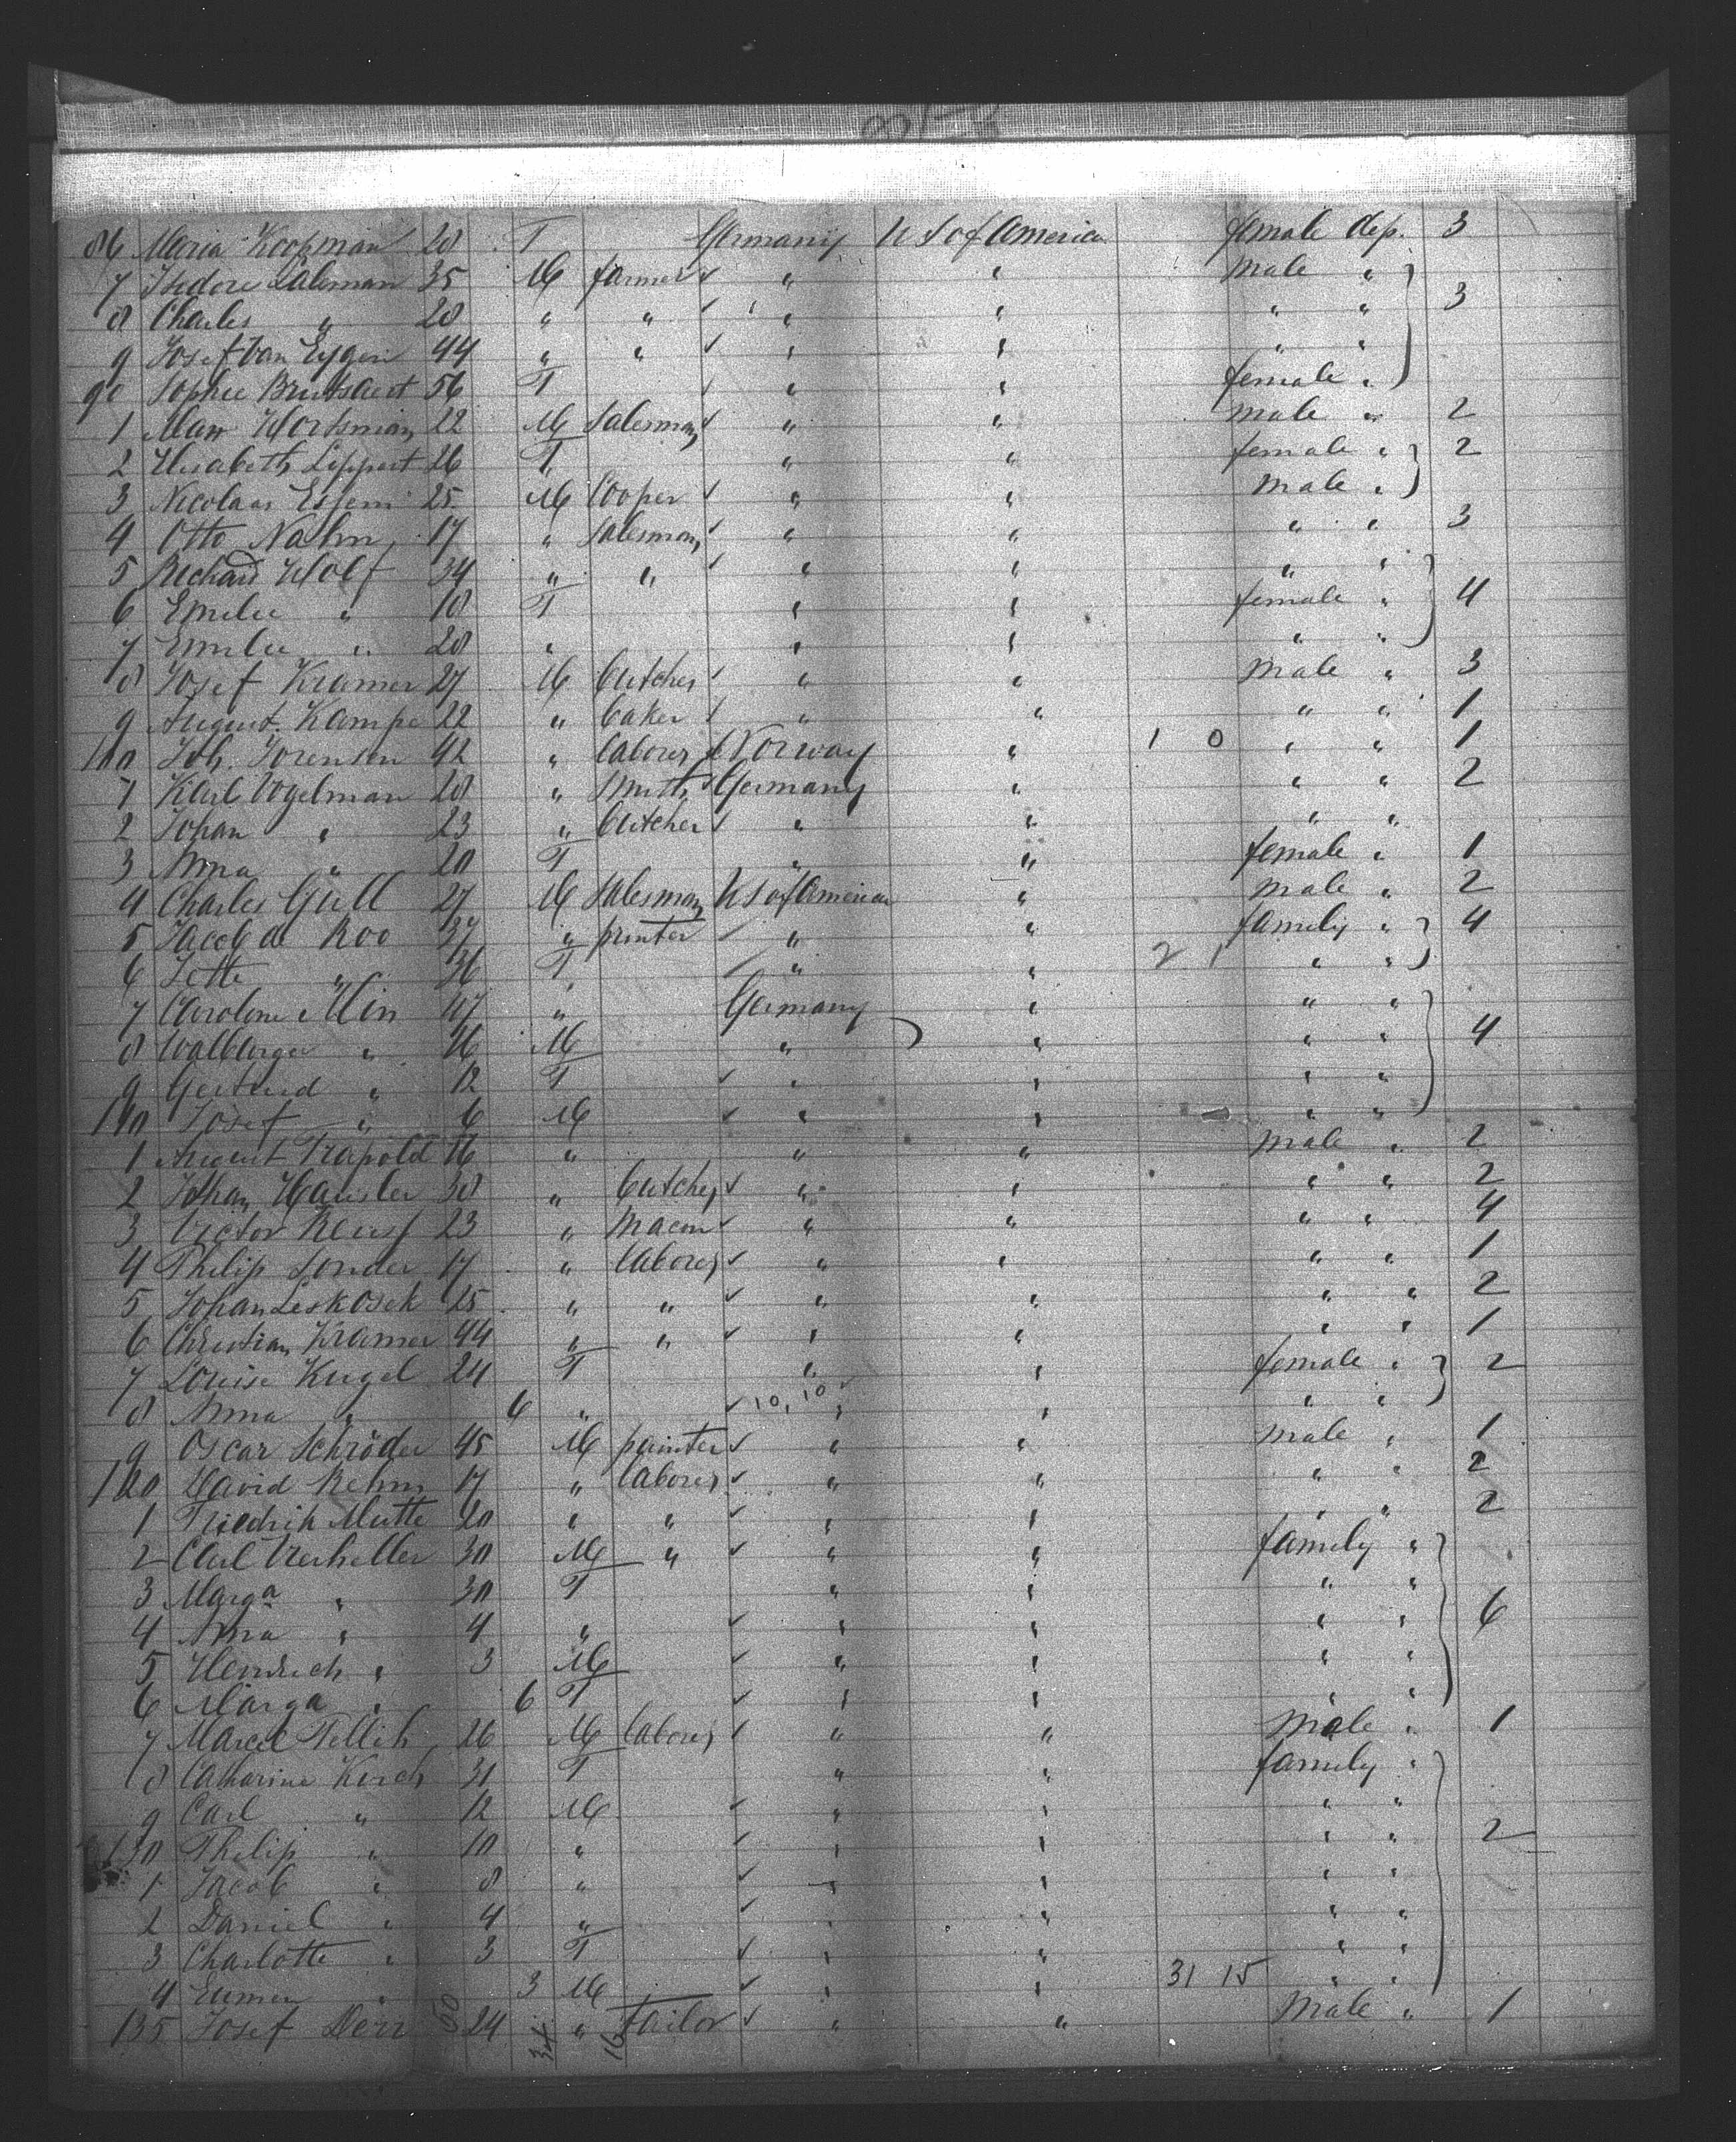 86 Maria Koopman 28 F Germany U S of America female dep. 3
7 Isedore Caleman 35 M farmer ✓ " " male "
8 Charles " 28 " " ✓ " " " " 3
9 Josef Van Eygen 44 " " ✓ " " " "
90 Sophie 56 F ✓ " " female "
1 Max Wortsman 22 M Salesman ✓ " " male " 2
2 Elisabeth Lippert 26 F " " female " 2
3 Nicolaas 25 M Cooper ✓ " " male "
4 Otto Nahm 17 " Salesman ✓ " " " " 3
5 Richard Wolf 34 " " ✓ " " " "
6 Emilie " 18 F " " female " 4
7 Emilie " 28 " " " " "
8 Josef Kramer 27 M butcher ✓ " " male " 3
9 August Kampe 22 " baker ✓ " " " " 1
100 Joh. Sorensen 42 " laborer ✓ Norway " 1 0 " " 1
1 Karl Vogelman 28 " Smith ✓ Germany " " " 2
2 Johan " 23 " butcher ✓ " " " "
3 Anna " 20 F " " female " 1
4 Charles Gull 27 M Salesman U S of America " male " 2
5 Jacob de Roo 37 " printer ✓ " " family " 4
6 Jette " 36 F ✓ " " 2 1 " "
7 Caroline 47 " Germany " " "
8 Walburga " 16 M " " " " 4
9 Gertrud " 12 F ✓ " " " "
110 Josef " 6 M ✓ " " " "
1 August Trapold 16 " " " male " 2
2 Johan Hausler 38 " butcher ✓ " " " " 2
3 Victor 23 " macon ✓ " " " " 4
4 Philip Sonder 17 " laborer ✓ " " " " 1
5 Johan Leskosek 25 " " ✓ " " " " 2
6 Christian Kramer 44 " " ✓ " " " " 1
7 Louise Kugel 24 F " " female " 2
8 Anna " 6 " ✓ 10, 10 " " " "
9 Oscar Schröder 45 M painter ✓ " " male " 1
120 David Rehm 17 " laborer ✓ " " " " 2
1 Friedrih Mutte 20 " " ✓ " " " " 2
2 Carl Verheller 30 M " ✓ " " family "
3 Marga " 30 F " " " "
4 Anna " 4 " ✓ " " " " 6
5 Hendrich " 3 M ✓ " " " "
6 Marga " 6 F ✓ " " " "
7 Marcel Fellih 26 M laborer ✓ " " male " 1
8 Catharine Kirch 31 F " " family "
9 Carl " 12 M ✓ " " " "
130 Philip " 10 " ✓ " " " " 2
1 Jacob " 8 " ✓ " " " "
2 Daniel " 4 " ✓ " " " "
3 Charlotte " 3 F ✓ " " " "
4 " 3 M ✓ " " 31 15 " "
135 Josef Derr 50 24 34 " 16 Tailor ✓ " " male " 1